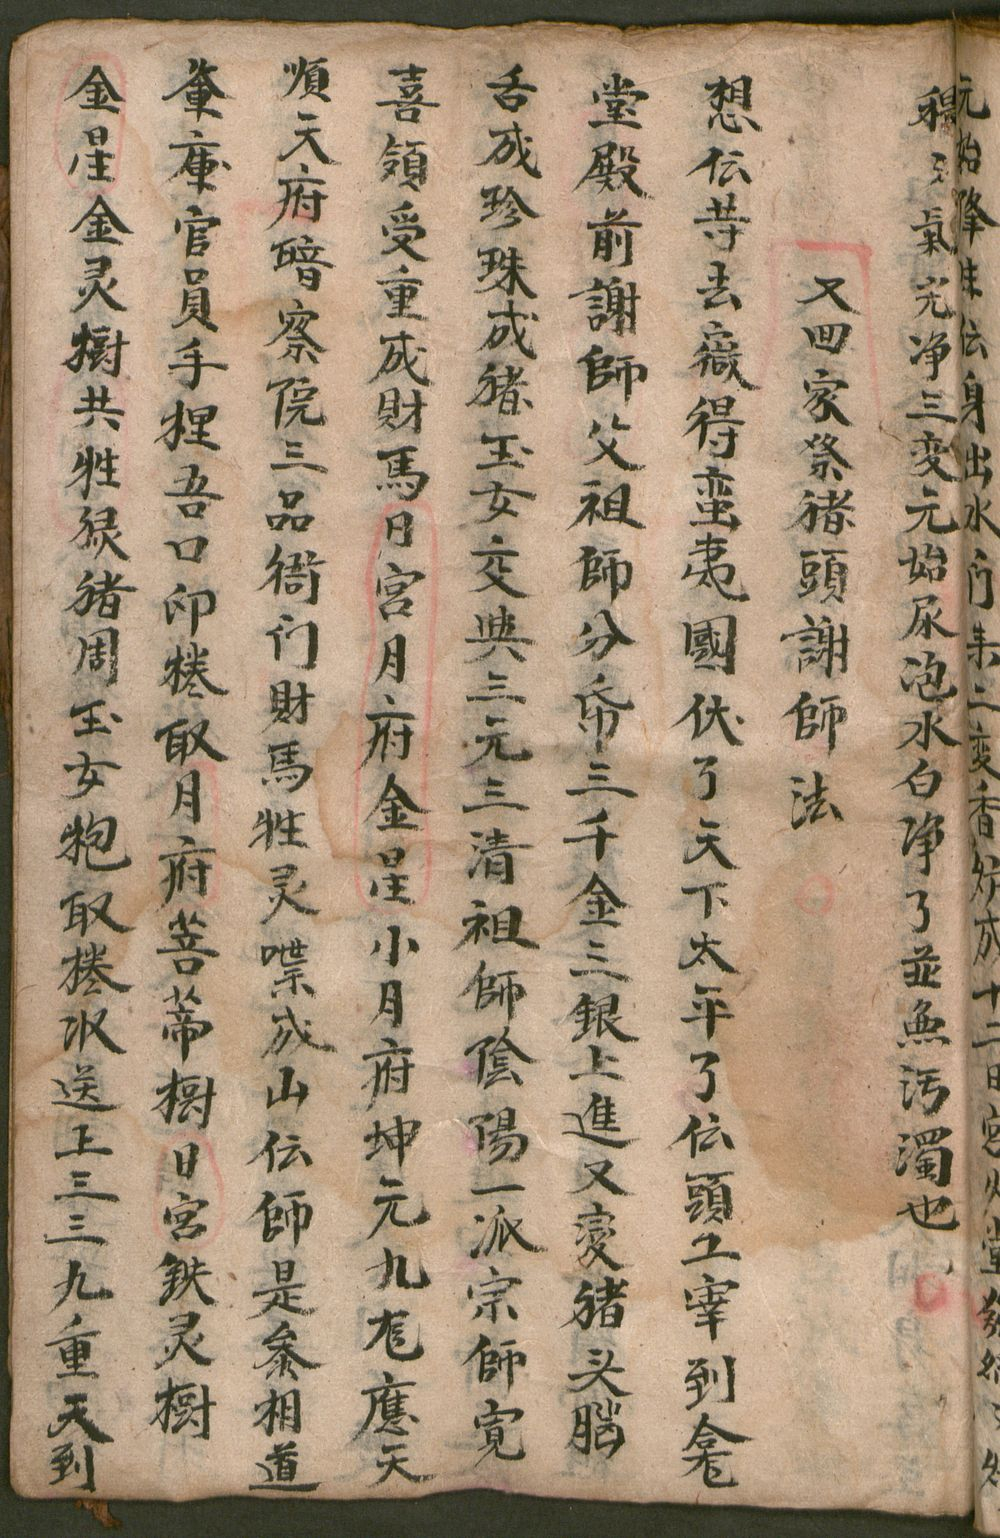 元始降生伝身出水门来二变香炉成十二日宫火堂
氣完净三变元始尿泡水白净了並無污濁也
又回家祭猪頭謝師法
想伝䒭去嶶得蛮夷國伏了天下太平了伝頭工宰到龛
堂殿前謝師父祖師分帋三千金三銀上進又变猪头腦
舌成珍珠成猪玉女交典三元三清祖師陰陽一派宗師寛
喜領受重成財馬日宫月府金星小月府坤元九尨應天
順天府暗察院三品衙门財馬牲灵喋成山伝師是叅相道
軰庫官員手捏吾口印捲取月府菩蒂樹日宫鉄灵樹
金星金灵樹共牲禄猪周玉女抱取捲収送上三三九重天到